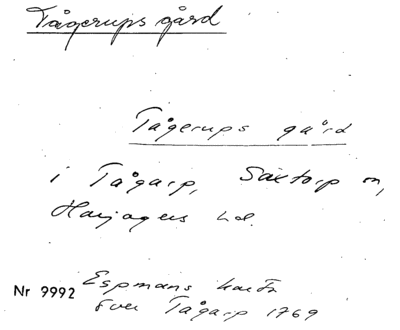 Tågerups gård
Tågerups gård
i Tågarp, Saxtorp sn,
Harjagers hd.
Nr 9992 Espmans karta
över Tågarp 1769